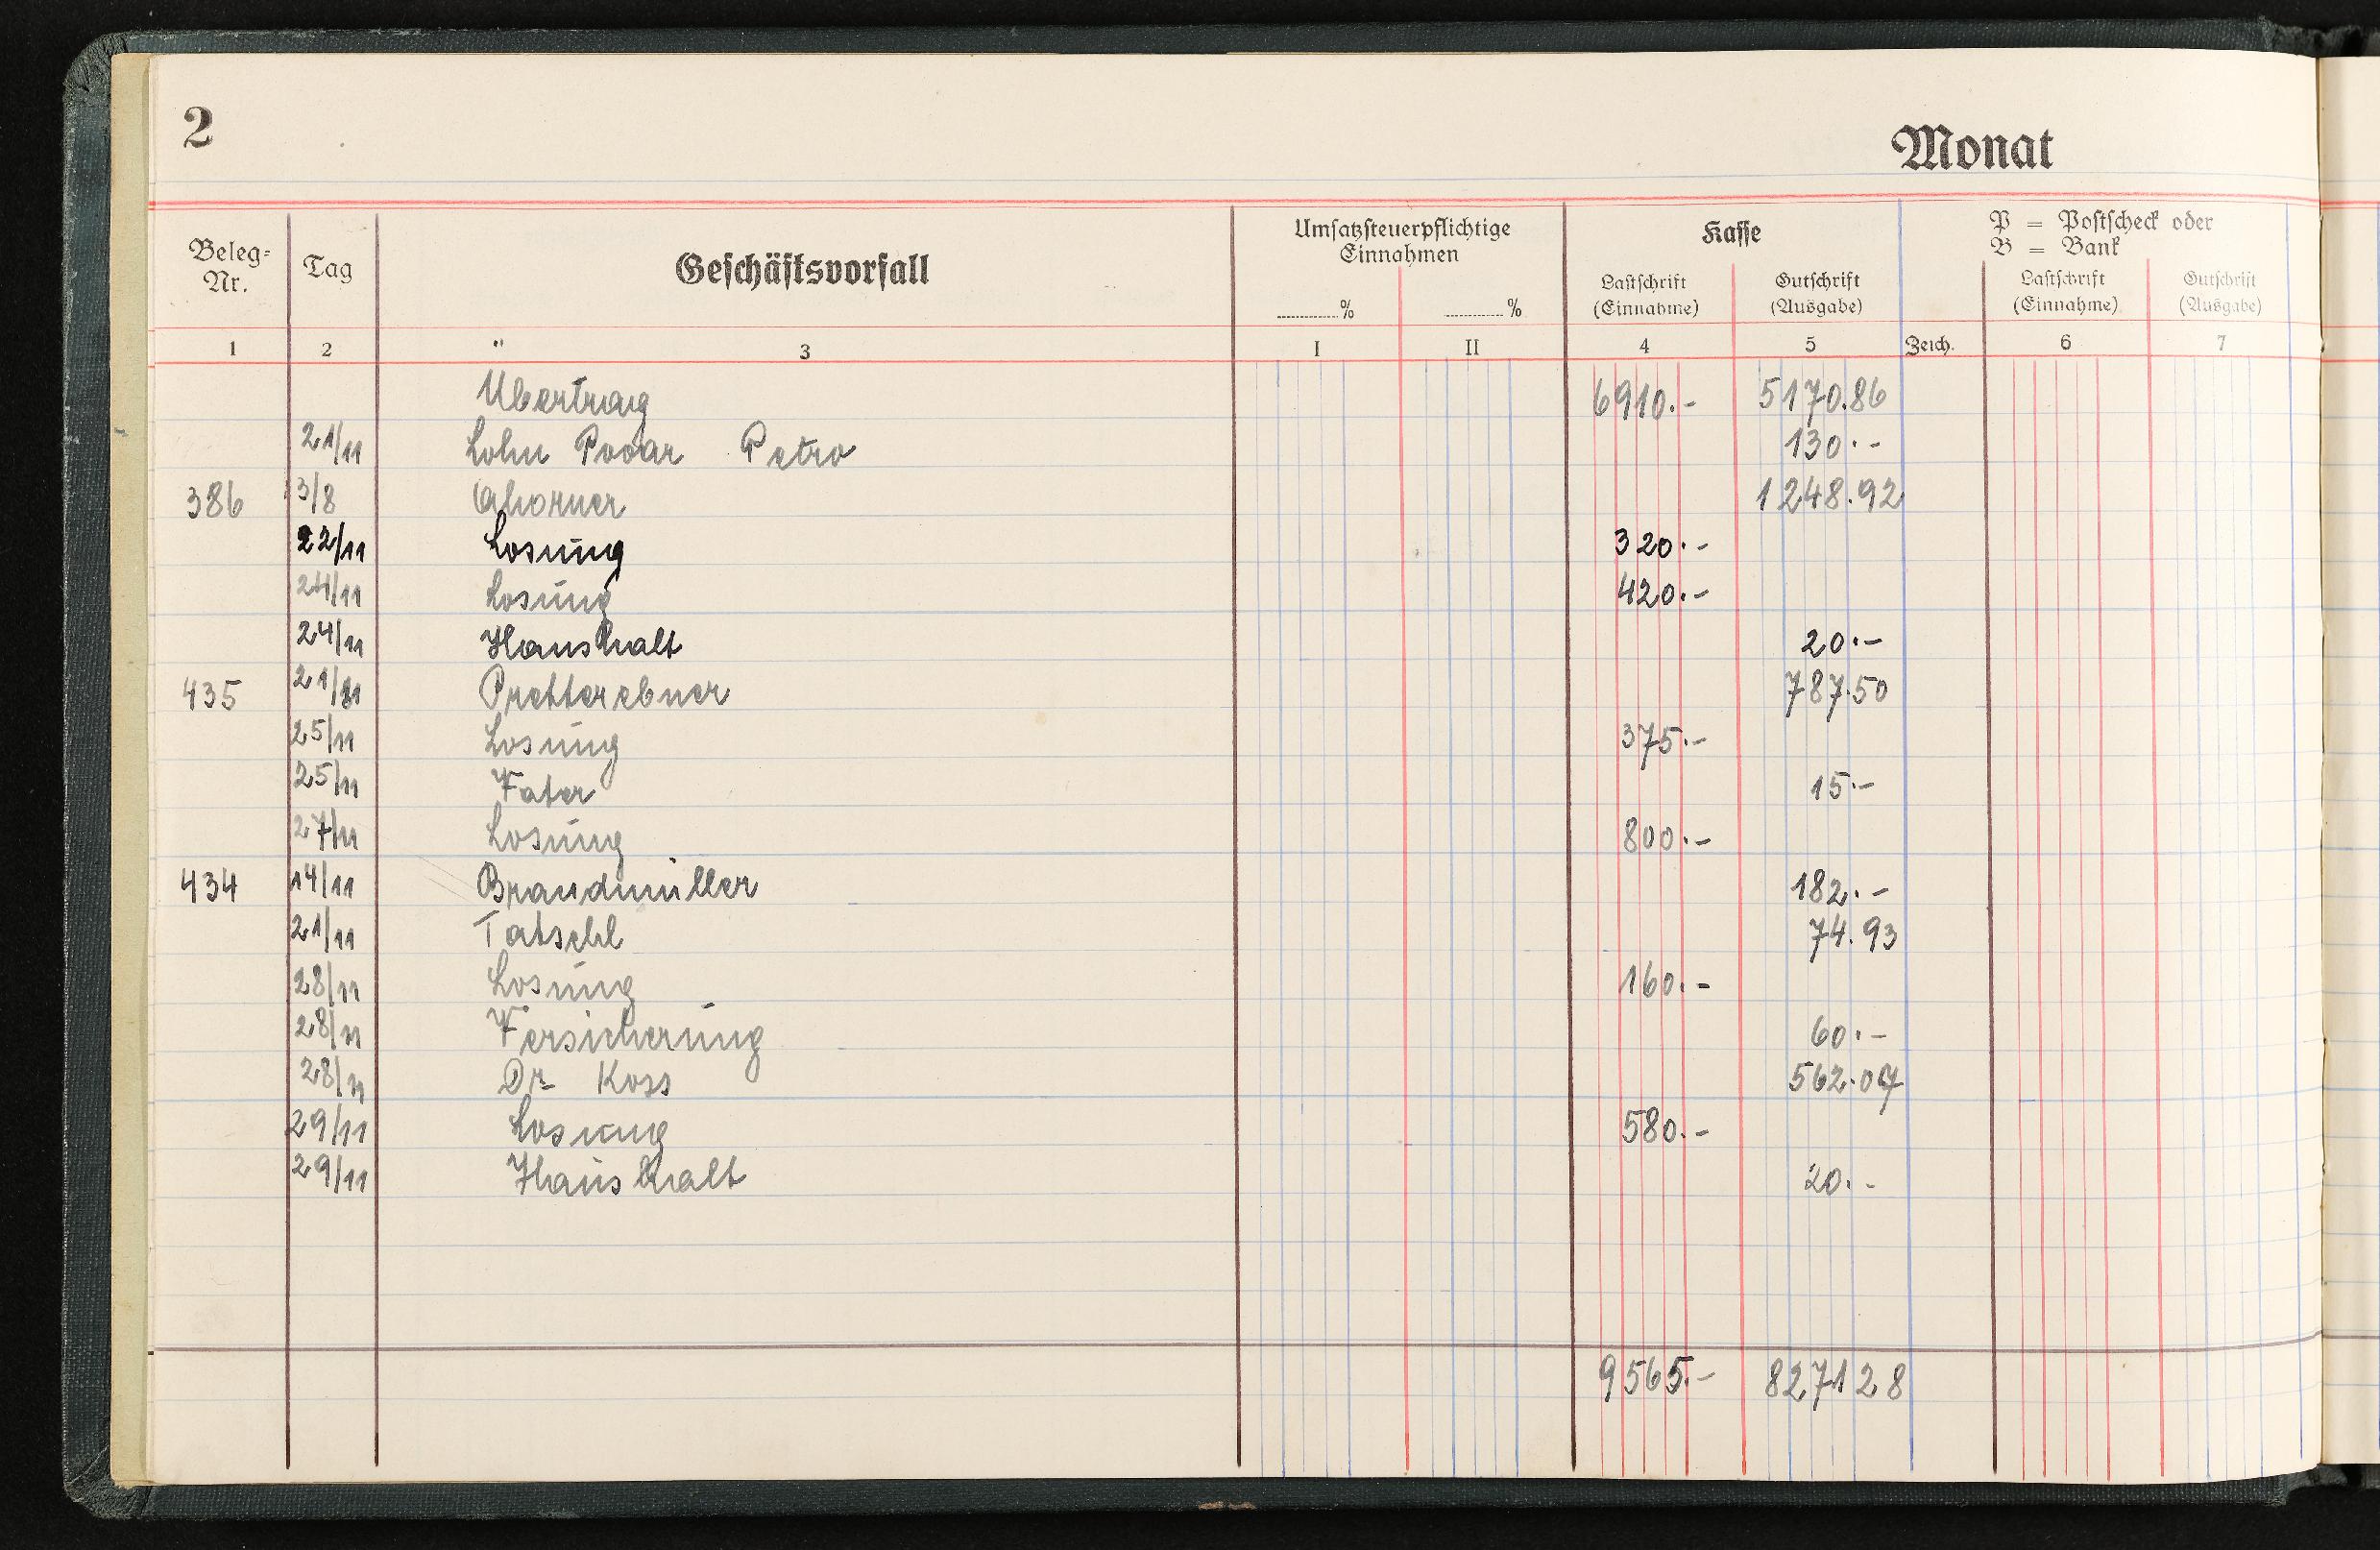 2
Monat
Beleg-Nr. Tag Geschäftsvorfall Umsatzsteuerpflichtige Einnahmen Kasse P = Postscheck oder B = Bank
..........% ..........% Lastschrift (Einnahme) Gutschrift (Ausgabe) Lastschrift (Einnahme) Gutschrift (Ausgabe)
1 2 3 I II 4 5 Zeich. 6 7
Übertrag 6910.- 5170.86
21/11 Lohn Petro 130.-
386 3/8 Ahorner 1248.92
22/11 Losung 320.-
24/11 Losung 420.-
24/11 Haushalt 20.-
435 21/11 Pretterebner 787.50
25/11 Losung 375.-
25/11 Fater 15.-
27/11 Losung 800.-
434 14/11 Brandmüller 182.-
21/11 Tatschl 74.93
28/11 Losung 160.-
28/11 Versicherung 60.-
28/11 Dr Koss 562.07
29/11 Losung 580.-
29/11 Haushalt 20.-
9565.- 827128